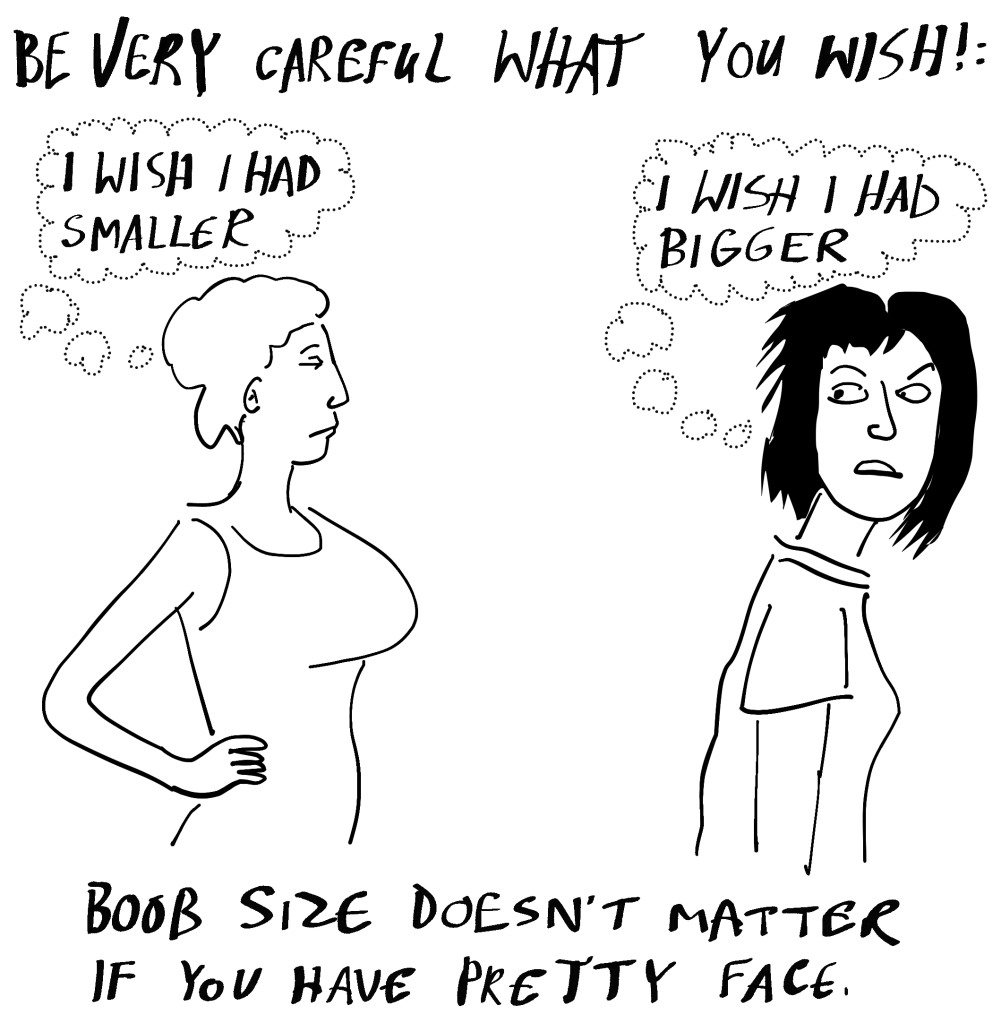 BE VERY CAREFUL WHAT YOU WISH!:
I WISH I HAD
SMALLER
I WISH I HAD
BIGGER
BOOB SIZE DOESN'T MATTER
IF YOU HAVE PRETTY FACE.